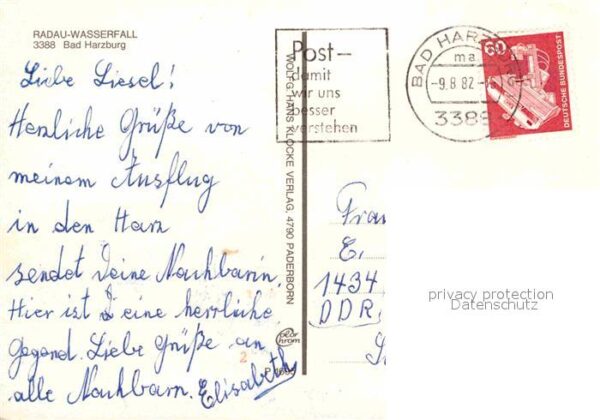 RADAU-WASSERFALL
3388 Bad Harzburg
Liebe Liesel!
Herzliche Grüße von
meinem Ausflug
in den Harz
sendet Deine Nachbarin.
Hier ist eine herrliche
Gegend. Liebe Grüße an
alle Nachbarn. Elisabeth
WOLFG. HANS KLOCKE VERLAG, 4790 PADERBORN
Post-
damit
wir uns
besser
verstehen
BAD HARZBURG
ma
-9.8.82
3388
60
DEUTSCHE BUNDESPOST
Frau
E.
1434
DDR
privacy protection
Datenschutz